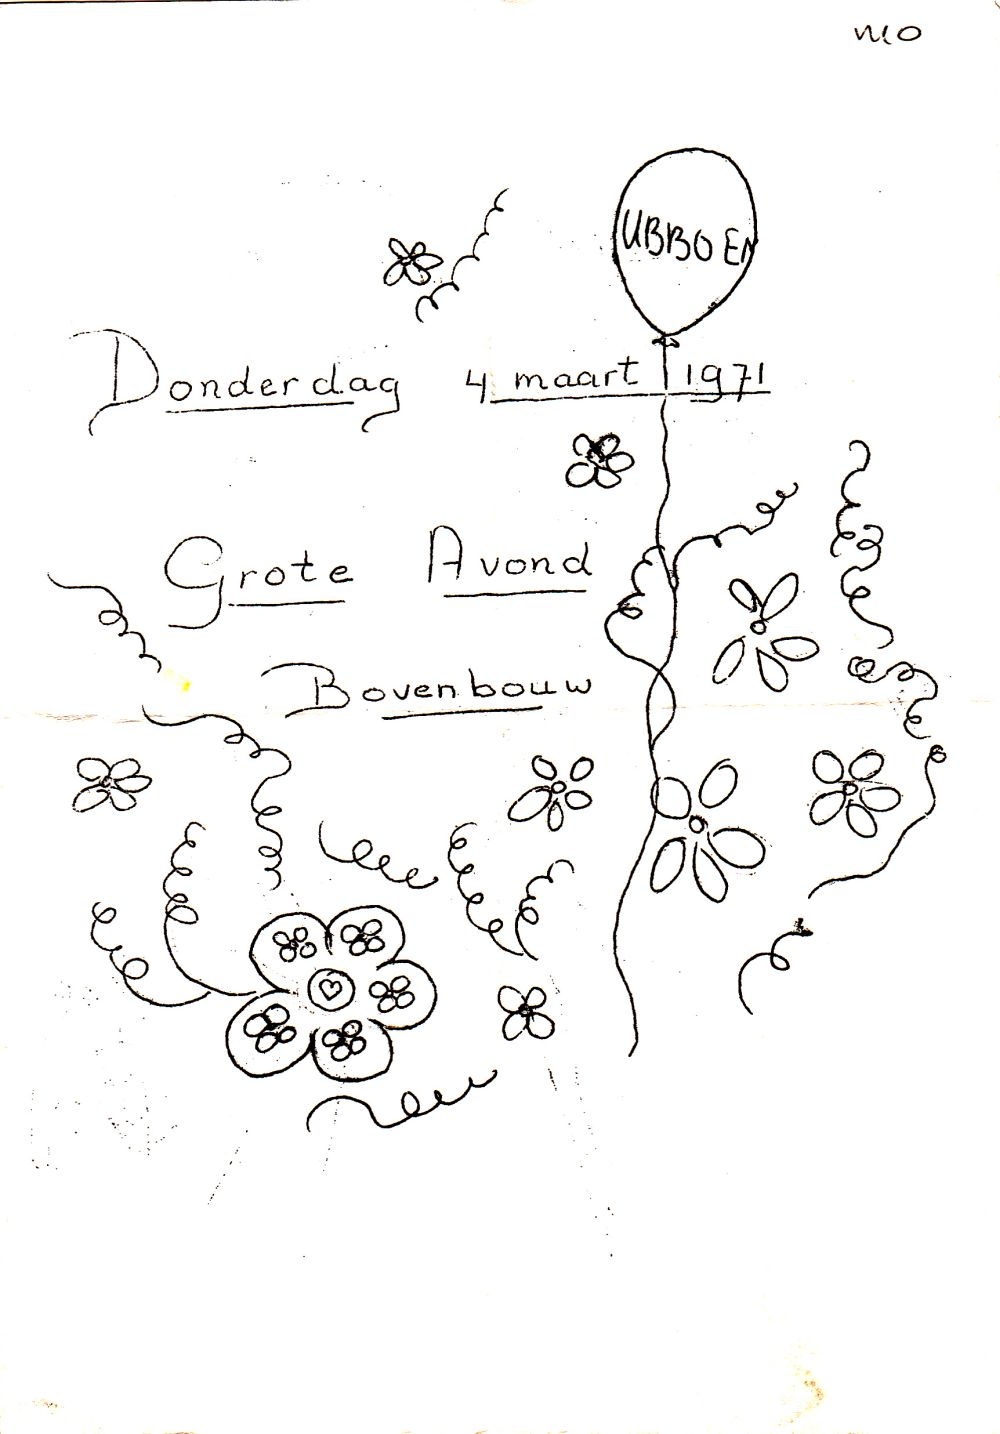 UBBO EN
Donderdag 4 maart 1971
Grote Avond
Bovenbouw